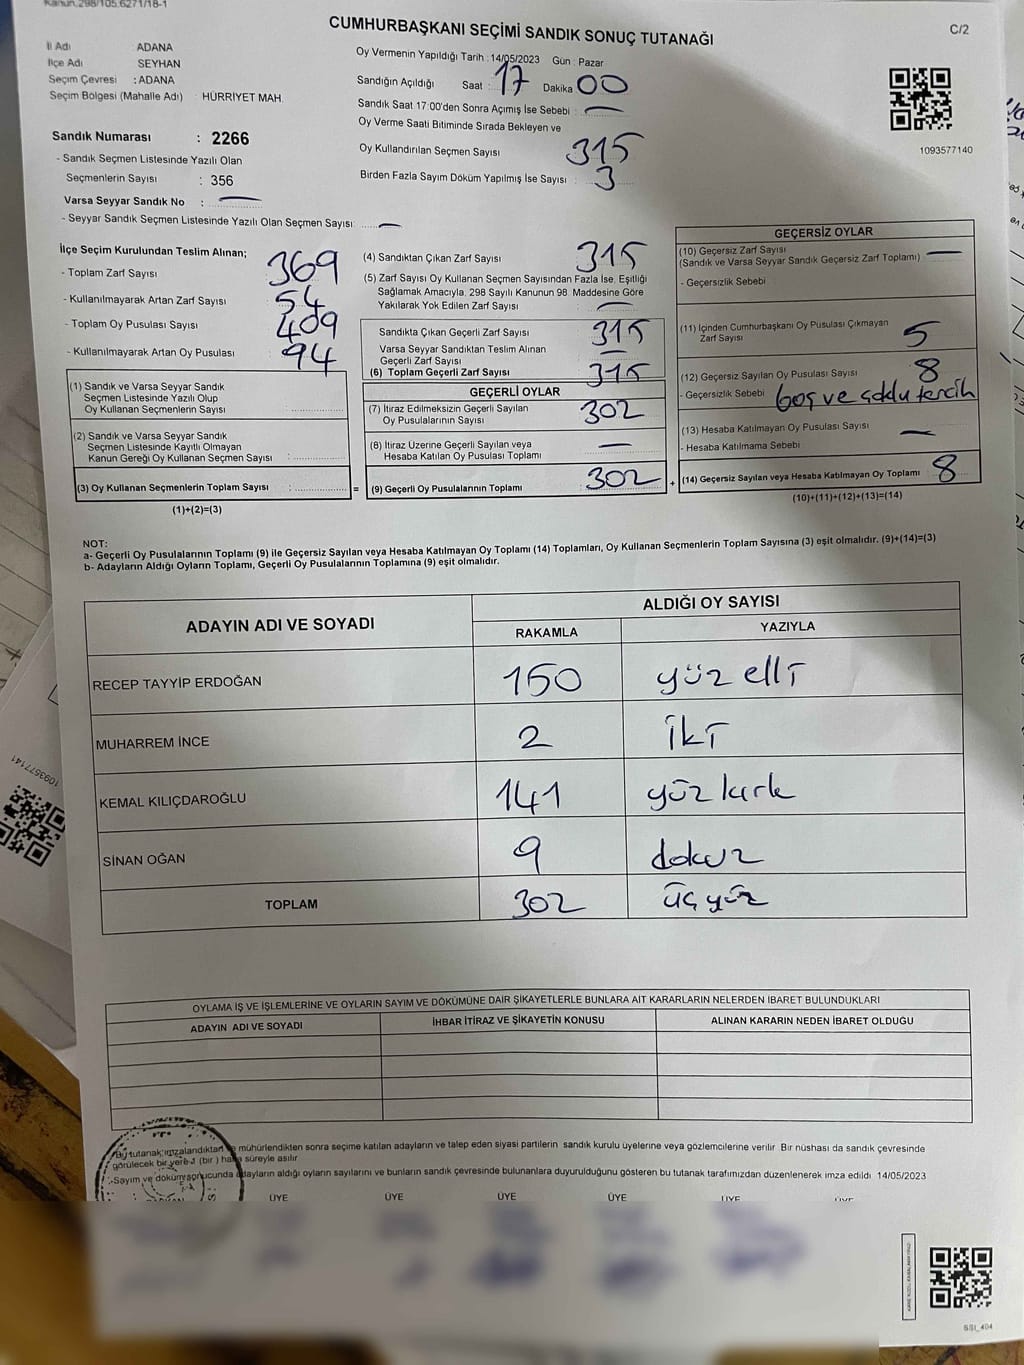 Kanun.298/105.6271/18-1
CUMHURBAŞKANI SEÇİMİ SANDIK SONUÇ TUTANAĞI
C/2
İl Adı ADANA
İlçe Adı SEYHAN
Seçim Çevresi : ADANA
Seçim Bölgesi (Mahalle Adı) : HÜRRİYET MAH.
Oy Vermenin Yapıldığı Tarih : 14/05/2023 Gün : Pazar
Sandığın Açıldığı Saat : 17 Dakika 00
Sandık Saat 17:00'den Sonra Açımış İse Sebebi : —
Oy Verme Saati Bitiminde Sırada Bekleyen ve
Oy Kullandırılan Seçmen Sayısı 315
Birden Fazla Sayım Döküm Yapılmış İse Sayısı : 3
1093577140
Sandık Numarası : 2266
- Sandık Seçmen Listesinde Yazılı Olan
Seçmenlerin Sayısı : 356
Varsa Seyyar Sandık No : —
- Seyyar Sandık Seçmen Listesinde Yazılı Olan Seçmen Sayısı : —
İlçe Seçim Kurulundan Teslim Alınan;
- Toplam Zarf Sayısı 369
- Kullanılmayarak Artan Zarf Sayısı 54
- Toplam Oy Pusulası Sayısı 409
- Kullanılmayarak Artan Oy Pusulası 94
(1) Sandık ve Varsa Seyyar Sandık
Seçmen Listesinde Yazılı Olup
Oy Kullanan Seçmenlerin Sayısı :
(2) Sandık ve Varsa Seyyar Sandık
Seçmen Listesinde Kayıtlı Olmayan
Kanun Gereği Oy Kullanan Seçmen Sayısı :
(3) Oy Kullanan Seçmenlerin Toplam Sayısı :
(1)+(2)=(3)
=
(4) Sandıktan Çıkan Zarf Sayısı 315
(5) Zarf Sayısı Oy Kullanan Seçmen Sayısından Fazla İse, Eşitliği
Sağlamak Amacıyla, 298 Sayılı Kanunun 98. Maddesine Göre
Yakılarak Yok Edilen Zarf Sayısı : —
Sandıkta Çıkan Geçerli Zarf Sayısı 315
Varsa Seyyar Sandıktan Teslim Alınan
Geçerli Zarf Sayısı —
(6) Toplam Geçerli Zarf Sayısı 315
GEÇERLİ OYLAR
(7) İtiraz Edilmeksizin Geçerli Sayılan
Oy Pusulalarının Sayısı 302
(8) İtiraz Üzerine Geçerli Sayılan veya
Hesaba Katılan Oy Pusulası Toplamı —
(9) Geçerli Oy Pusulalarının Toplamı 302
+
GEÇERSİZ OYLAR
(10) Geçersiz Zarf Sayısı
(Sandık ve Varsa Seyyar Sandık Geçersiz Zarf Toplamı) —
- Geçersizlik Sebebi :
(11) İçinden Cumhurbaşkanı Oy Pusulası Çıkmayan
Zarf Sayısı 5
(12) Geçersiz Sayılan Oy Pusulası Sayısı 8
- Geçersizlik Sebebi : boş ve çoklu tercih
(13) Hesaba Katılmayan Oy Pusulası Sayısı —
- Hesaba Katılmama Sebebi :
(14) Geçersiz Sayılan veya Hesaba Katılmayan Oy Toplamı 8
(10)+(11)+(12)+(13)=(14)
NOT:
a- Geçerli Oy Pusulalarının Toplamı (9) ile Geçersiz Sayılan veya Hesaba Katılmayan Oy Toplamı (14) Toplamları, Oy Kullanan Seçmenlerin Toplam Sayısına (3) eşit olmalıdır. (9)+(14)=(3)
b- Adayların Aldığı Oyların Toplamı, Geçerli Oy Pusulalarının Toplamına (9) eşit olmalıdır.
ADAYIN ADI VE SOYADI
ALDIĞI OY SAYISI
RAKAMLA YAZIYLA
RECEP TAYYİP ERDOĞAN 150 yüz elli
MUHARREM İNCE 2 iki
KEMAL KILIÇDAROĞLU 141 yüz kırk
SİNAN OĞAN 9 dokuz
TOPLAM 302 üç yüz
1093577141
OYLAMA İŞ VE İŞLEMLERİNE VE OYLARIN SAYIM VE DÖKÜMÜNE DAİR ŞİKAYETLERLE BUNLARA AİT KARARLARIN NELERDEN İBARET BULUNDUKLARI
ADAYIN ADI VE SOYADI İHBAR İTİRAZ VE ŞİKAYETİN KONUSU ALINAN KARARIN NEDEN İBARET OLDUĞU
Bu tutanak; imzalandıktan ve mühürlendikten sonra seçime katılan adayların ve talep eden siyasi partilerin sandık kurulu üyelerine veya gözlemcilerine verilir. Bir nüshası da sandık çevresinde
görülecek bir yere 1 (bir) hafta süreyle asılır.
-Sayım ve döküm sonucunda adayların aldığı oyların sayılarını ve bunların sandık çevresinde bulunanlara duyurulduğunu gösteren bu tutanak tarafımızdan düzenlenerek imza edildi. 14/05/2023
ÜYE ÜYE ÜYE ÜYE ÜYE ÜYE
SSI_404